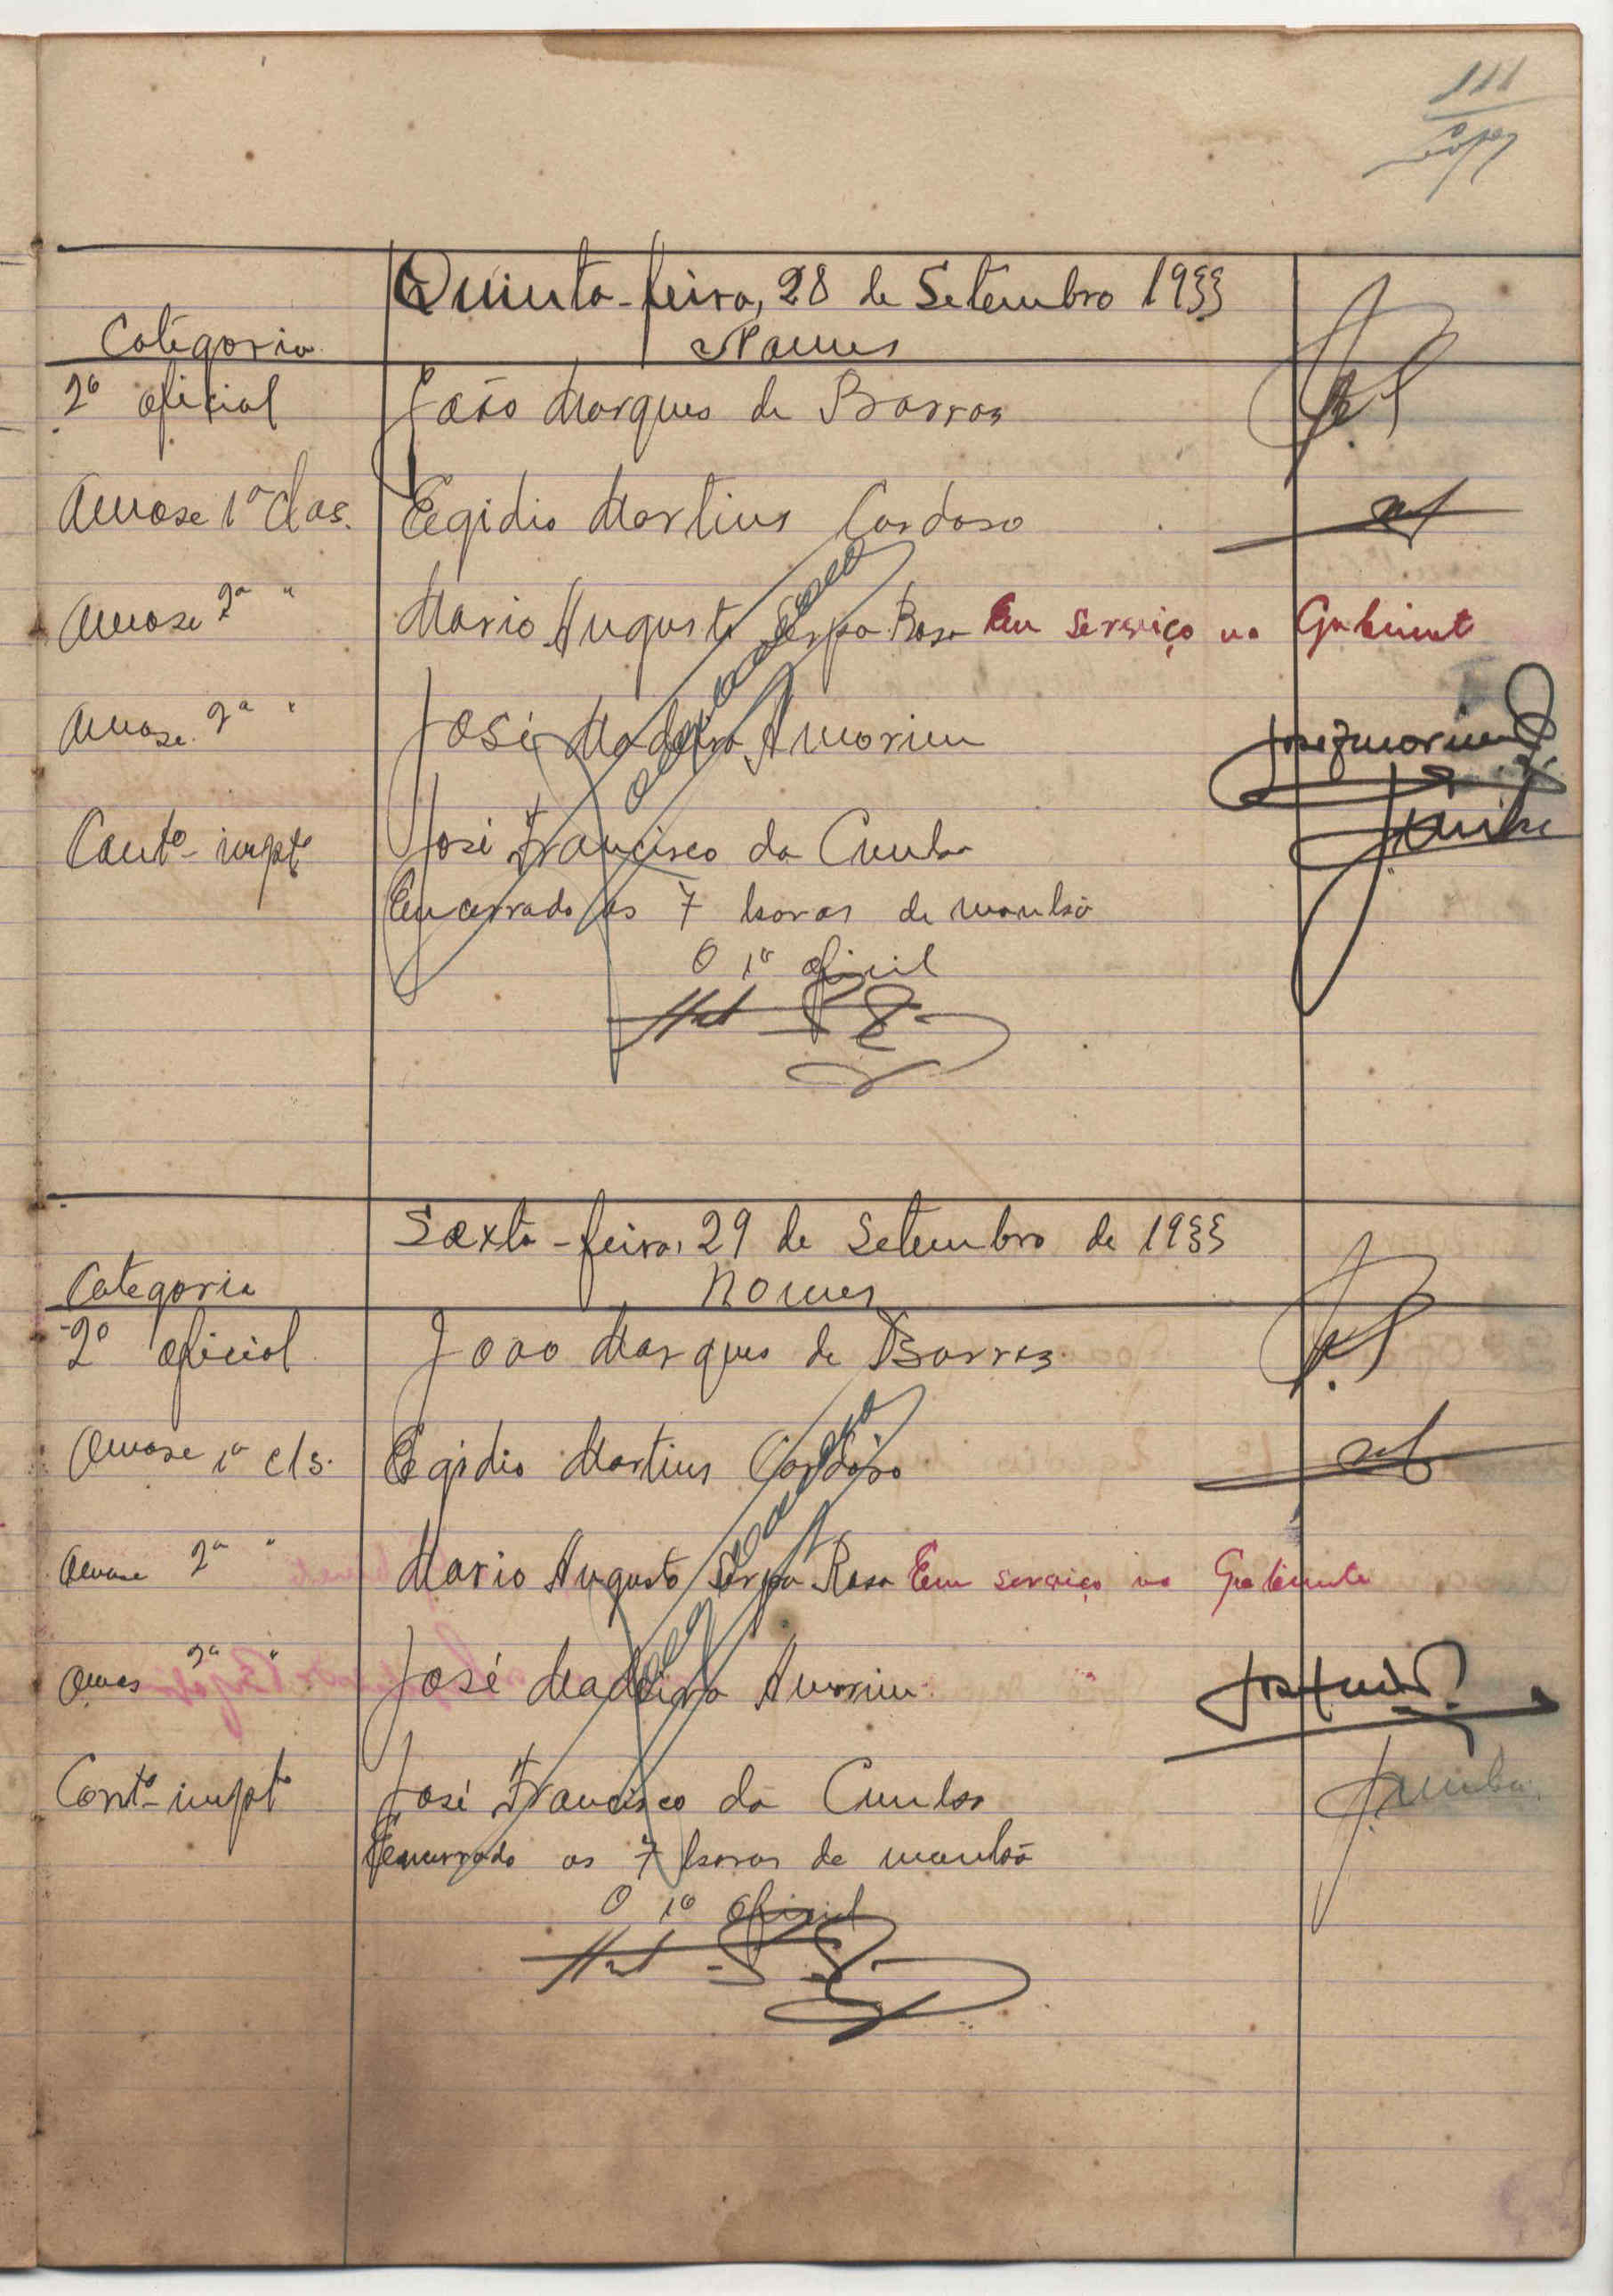 111
Quinta-feira, 28 de Setembro 1933
Categoria Nomes
2º oficial João Marques de Barros
Amase 1ª Clas. Egidio Martins Cardoso
Amase 2ª " Mario Augusto Serpa Rosa Em Serviço no Gabinet
Amase 2ª " José Madeira Amorim José Amorim
Contº impto José Francisco da Cunha
Encerrado as 7 horas de manhã
O 1º oficial
Sexta-feira, 29 de Setembro de 1933
Categoria Nomes
2º oficial Joao Marques de Barros
Amase 1ª cls. Egidio Martins Cardoso
Amase 2ª " Mario Augusto Serpa Rosa Em serviço no Gabinete
Amas 2ª " José Madeira Amorim
Contº impto José Francisco da Cunha JCunha
Encerrado as 7 horas de manhã
O 1º oficial